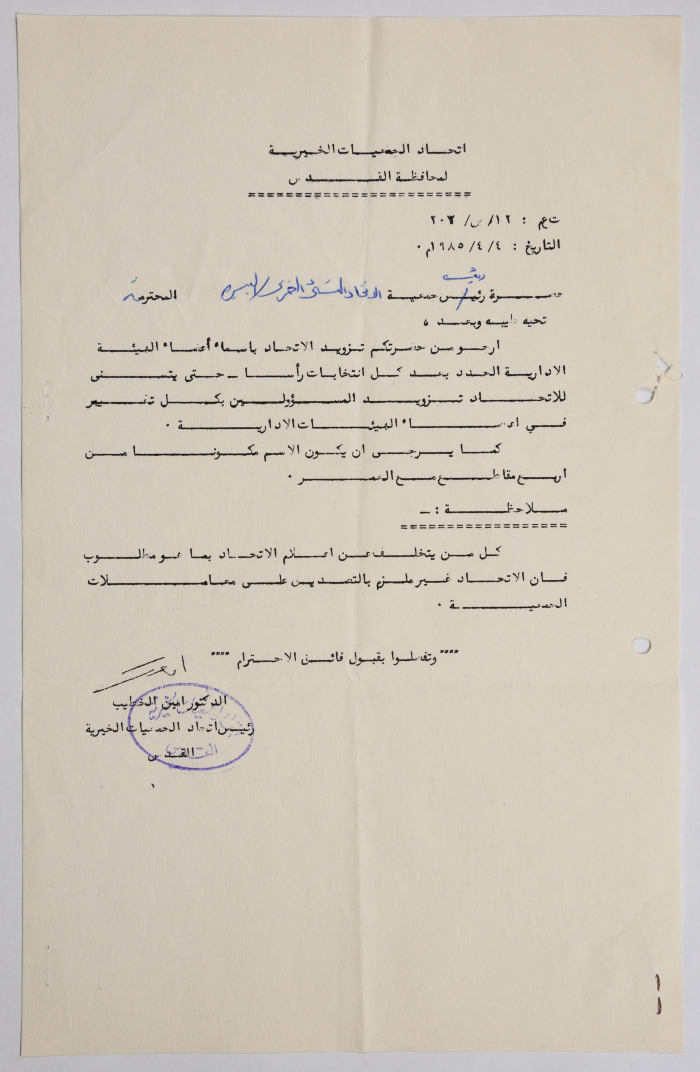 اتحاد الجمعيات الخيرية
لمحافظة القدس
ت ع م : ١٢/س/٢٠٦
التاريخ : ١٩٨٥/٤/٤م .
رئيسة
حضرة رئيس جمعية الاتحاد النسائي الخيري / البيره المحترمة
تحيه طيبه وبعد ،
ارجو من حضرتكم تزويد الاتحاد باسماء أعضاء الهيئة
الادارية الجدد بعد كل انتخابات رأسا ـ حتى يتسنى
للاتحاد تزويد المسؤولين بكل تغيير
في اعضاء الهيئات الادارية .
كما يرجى ان يكون الاسم مكونا من
اربع مقاطع مع العمر .
ملاحظة : ـ
كل من يتخلف عن اعلام الاتحاد بما هو مطلوب
فان الاتحاد غير ملزم بالتصديق على معاملات
الجمعية .
"""" وتفضلوا بقبول فائق الاحترام """"
الدكتور امين الخطيب
رئيس اتحاد الجمعيات الخيرية
القدس